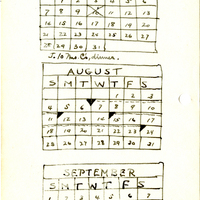 7 8 9 11 12 13
14 15 16 17 18 19 20
21 22 23 24 25 26 27
28 29 30 31
AUGUST
S M T W T F S
1 2 3
4 5 6 7 8 9 10
11 12 13 14 15 16 17
18 19 20 21 22 23 24
25 26 27 28 29 30 31
SEPTEMBER
S M T W T F S
1 2 3 4 5 6 7